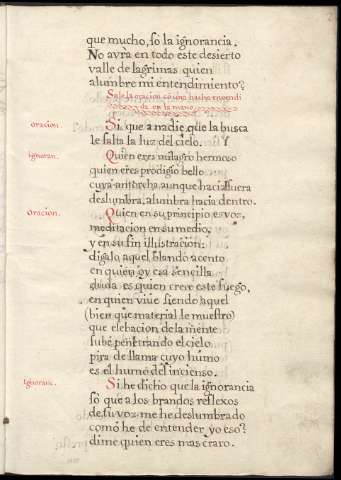 que mucho, so la ignorancia.
No avrà en todo este desierto
valle de lagrimas quien
alumbre mi entendimiento?
Sale la oracion cõ una hacha encendida en la mano
oracion. Si que a nadie que la busca
le falta la luz del cielo.
ignoran. Quien eres milagro hermoso
quien eres prodigio bello
cuya antorcha aunque hacia fuera
deslumbra, alumbra hacia dentro.
oracion. Quien en su principio es voz,
meditacion en su medio,
y en su fin illustracion:
digalo aquel blando acento
en quien oy esa sencilla
duda es quien cree este fuego,
en quien vive siendo aquel
(bien que material le muestro)
que elebacion de la mente
sube penetrando el cielo
pira de llama cuyo humo
es el humo del incienso.
ignoran. Si he dicho que la ignorancia
so que a los brandos reflexos
de tu voz me he deslumbrado
como he de entender yo eso?
dime quien eres mas craro.